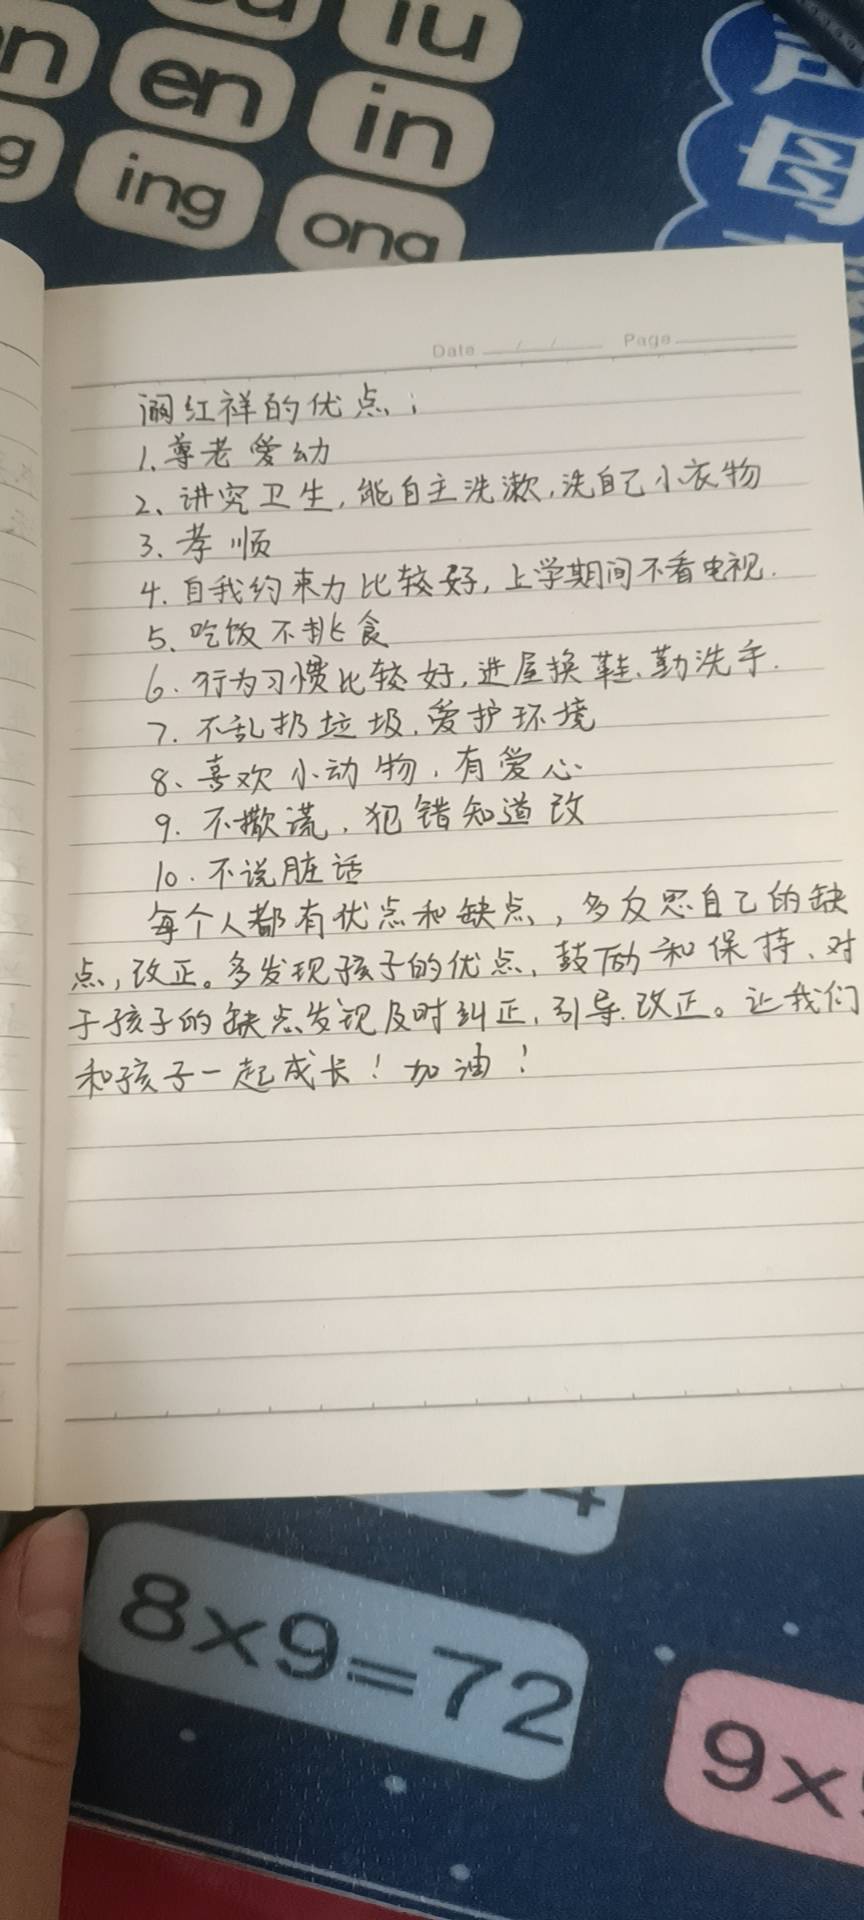 iu
en
in
ing
ong
母
Date / / Page
阚红祥的优点：
1.尊老爱幼
2、讲究卫生,能自主洗漱,洗自己小衣物
3.孝顺
4.自我约束力比较好,上学期间不看电视.
5、吃饭不挑食
6.行为习惯比较好,进屋换鞋、勤洗手.
7.不乱扔垃圾,爱护环境
8、喜欢小动物,有爱心
9.不撒谎,犯错知道改
10.不说脏话
每个人都有优点和缺点,多反思自己的缺
点,改正。多发现孩子的优点,鼓励和保持、对
于孩子的缺点发现及时纠正,引导.改正。让我们
和孩子一起成长!加油!
8×9=72
9×